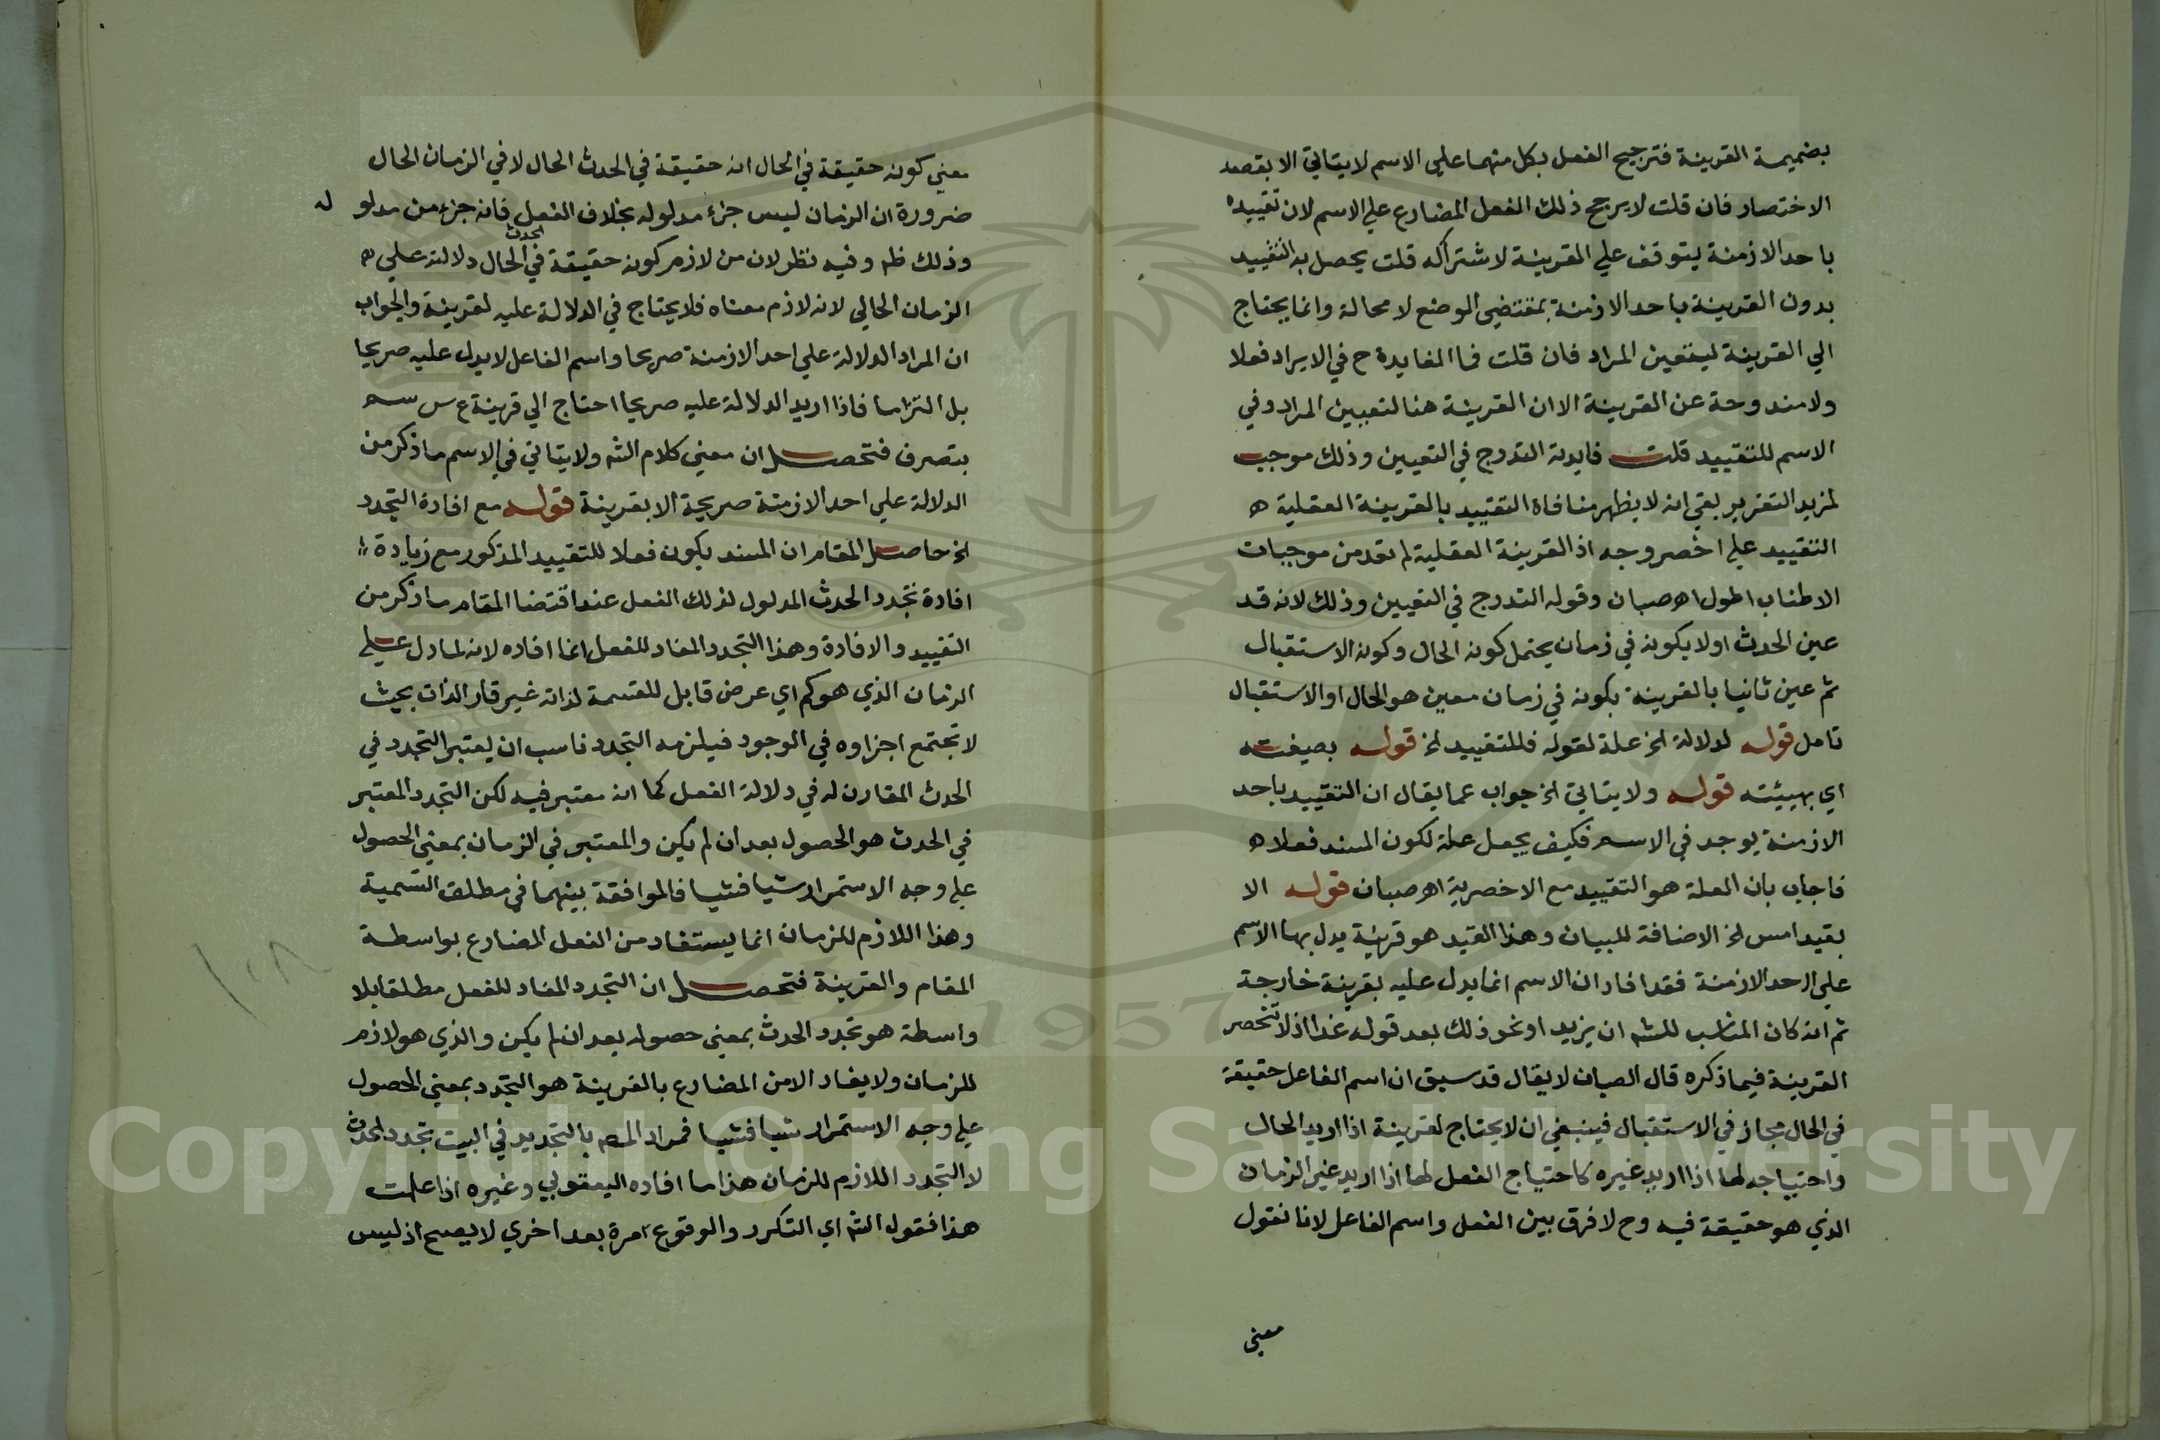 بضميمة القرينة فترجيح الفعل بكل منهما على الاسم لا يتاتي الا بقصد
الاختصار فان قلت لا يرجح ذلك الفعل المضارع علي الاسم لان تقييده
باحد الازمنة يتوقف علي القرينة لاشتراكه قلت يحصل به التقييد
بدون القرينة باحد الازمنة بمقتضى الوضع لا محالة وانما يحتاج
الي القرينة ليتعين المراد فان قلت فما الفايدة ح في الايراد فعلا
ولا مندوحة عن القرينة الا ان القرينة هنا لتعيين المراد وفي
الاسم للتقييد قلت فايدته التدرج في التعيين وذلك موجب
لمزيد التقرير بقي انه لا يظهر منافاة التقييد بالقرينة العقلية ه
التقييد علي اخصر وجه اذ القرينة العقلية لم تعد من موجبات
الاطناب اطول اه صبان وقوله التدرج في التعيين وذلك لانه قد
عين الحدث اولا بكونه في زمان يحتمل كونه الحال وكونه الاستقبال
ثم عين ثانيا بالقرينة بكونه في زمان معين هو الحال او الاستقبال
تامل قوله لدلالة الخ علة لقوله فللتقييد الخ قوله بصيغته
اي بهيئته قوله ولا يتاتي الخ جواب عما يقال ان التقييد باحد
الازمنة يوجد في الاسم فكيف يجعل علة لكون المسند فعلا ه
فاجاب بان العلة هو التقييد مع الاخصرية اه صبان قوله الا
بقيد امس الخ الاضافة للبيان وهذا القيد هو قرينة يدل بها الاسم
علي احد الازمنة فقد افاد ان الاسم انما يدل عليه بقرينة خارجة
ثم انه كان المناسب للش ان يزيد او نحو ذلك بعد قوله غدا اذ لا تنحصر
القرينة فيما ذكره قال الصبان لا يقال قد سبق ان اسم الفاعل حقيقة
في الحال مجاز في الاستقبال فينبغي ان لا يحتاج لقرينة اذا اريد الحال
واحتياجه لها اذا اريد غيره كاحتياج الفعل لها اذا اريد غير الزمان
الذي هو حقيقة فيه وح لا فرق بين الفعل واسم الفاعل لانا نقول
معني
معني كونه حقيقة في الحال انه حقيقة في الحدث الحال لا في الزمان الحال
ضرورة ان الزمان ليس جزء مدلوله بخلاف الفعل فانه جزء من مدلو له
وذلك ظ وفيه نظر لان من لازم كونه حقيقة في الحدث الحال دلالته علي ه
الزمان الحالي لانه لازم معناه فلا يحتاج في الدلالة عليه لقرينة والجواب
ان المراد الدلالة علي احد الازمنة صريحا واسم الفاعل لا يدل عليه صريحا
بل التزاما فاذا اريد الدلالة عليه صريحا احتاج الي قرينة ع س سم
بتصرف فتحصل ان معني كلام الش ولا يتاتي في الاسم ما ذكر من
الدلالة علي احد الازمنة صريحة الا بقرينة قوله مع افادة التجدد
الخ حاصل المقام ان المسند يكون فعلا للتقييد المذكور مع زيادة
افادة تجدد الحدث المدلول لذلك الفعل عند اقتضا المقام ما ذكر من
التقييد والافادة وهذا التجدد المفاد للفعل انما افاده لانه لما دل علي
الزمان الذي هو كم اي عرض قابل للقسمة لذاته غير قار الذات بحيث
لا تجتمع اجزاوه في الوجود فيلزمه التجدد ناسب ان يعتبر التجدد في
الحدث المقارن له في دلالة الفعل كما انه معتبر فيه لكن التجدد المعتبر
في الحدث هو الحصول بعد ان لم يكن والمعتبر في الزمان بمعني الحصول
علي وجه الاستمرار شيا فشيا فالموافقة بينهما في مطلق التسمية
وهذا اللازم للزمان انما يستفاد من الفعل المضارع بواسطة
المقام والقرينة فتحصل ان التجدد المفاد للفعل مطلقا بلا
واسطة هو تجدد الحدث بمعني حصوله بعد ان لم يكن والذي هو لازم
للزمان ولا يفاد الا من المضارع بالقرينة هو التجدد بمعني الحصول
علي وجه الاستمرار شيا فشيا فمراد المص بالتجديد في البيت تجدد الحدث
لا التجدد اللازم للزمان هذا ما افاده اليعقوبي وغيره اذا علمت
هذا فقول الش اي التكرر والوقوع مرة بعد اخري لا يصح اذ ليس
١٠٨
1957
Copyright © King Saud University